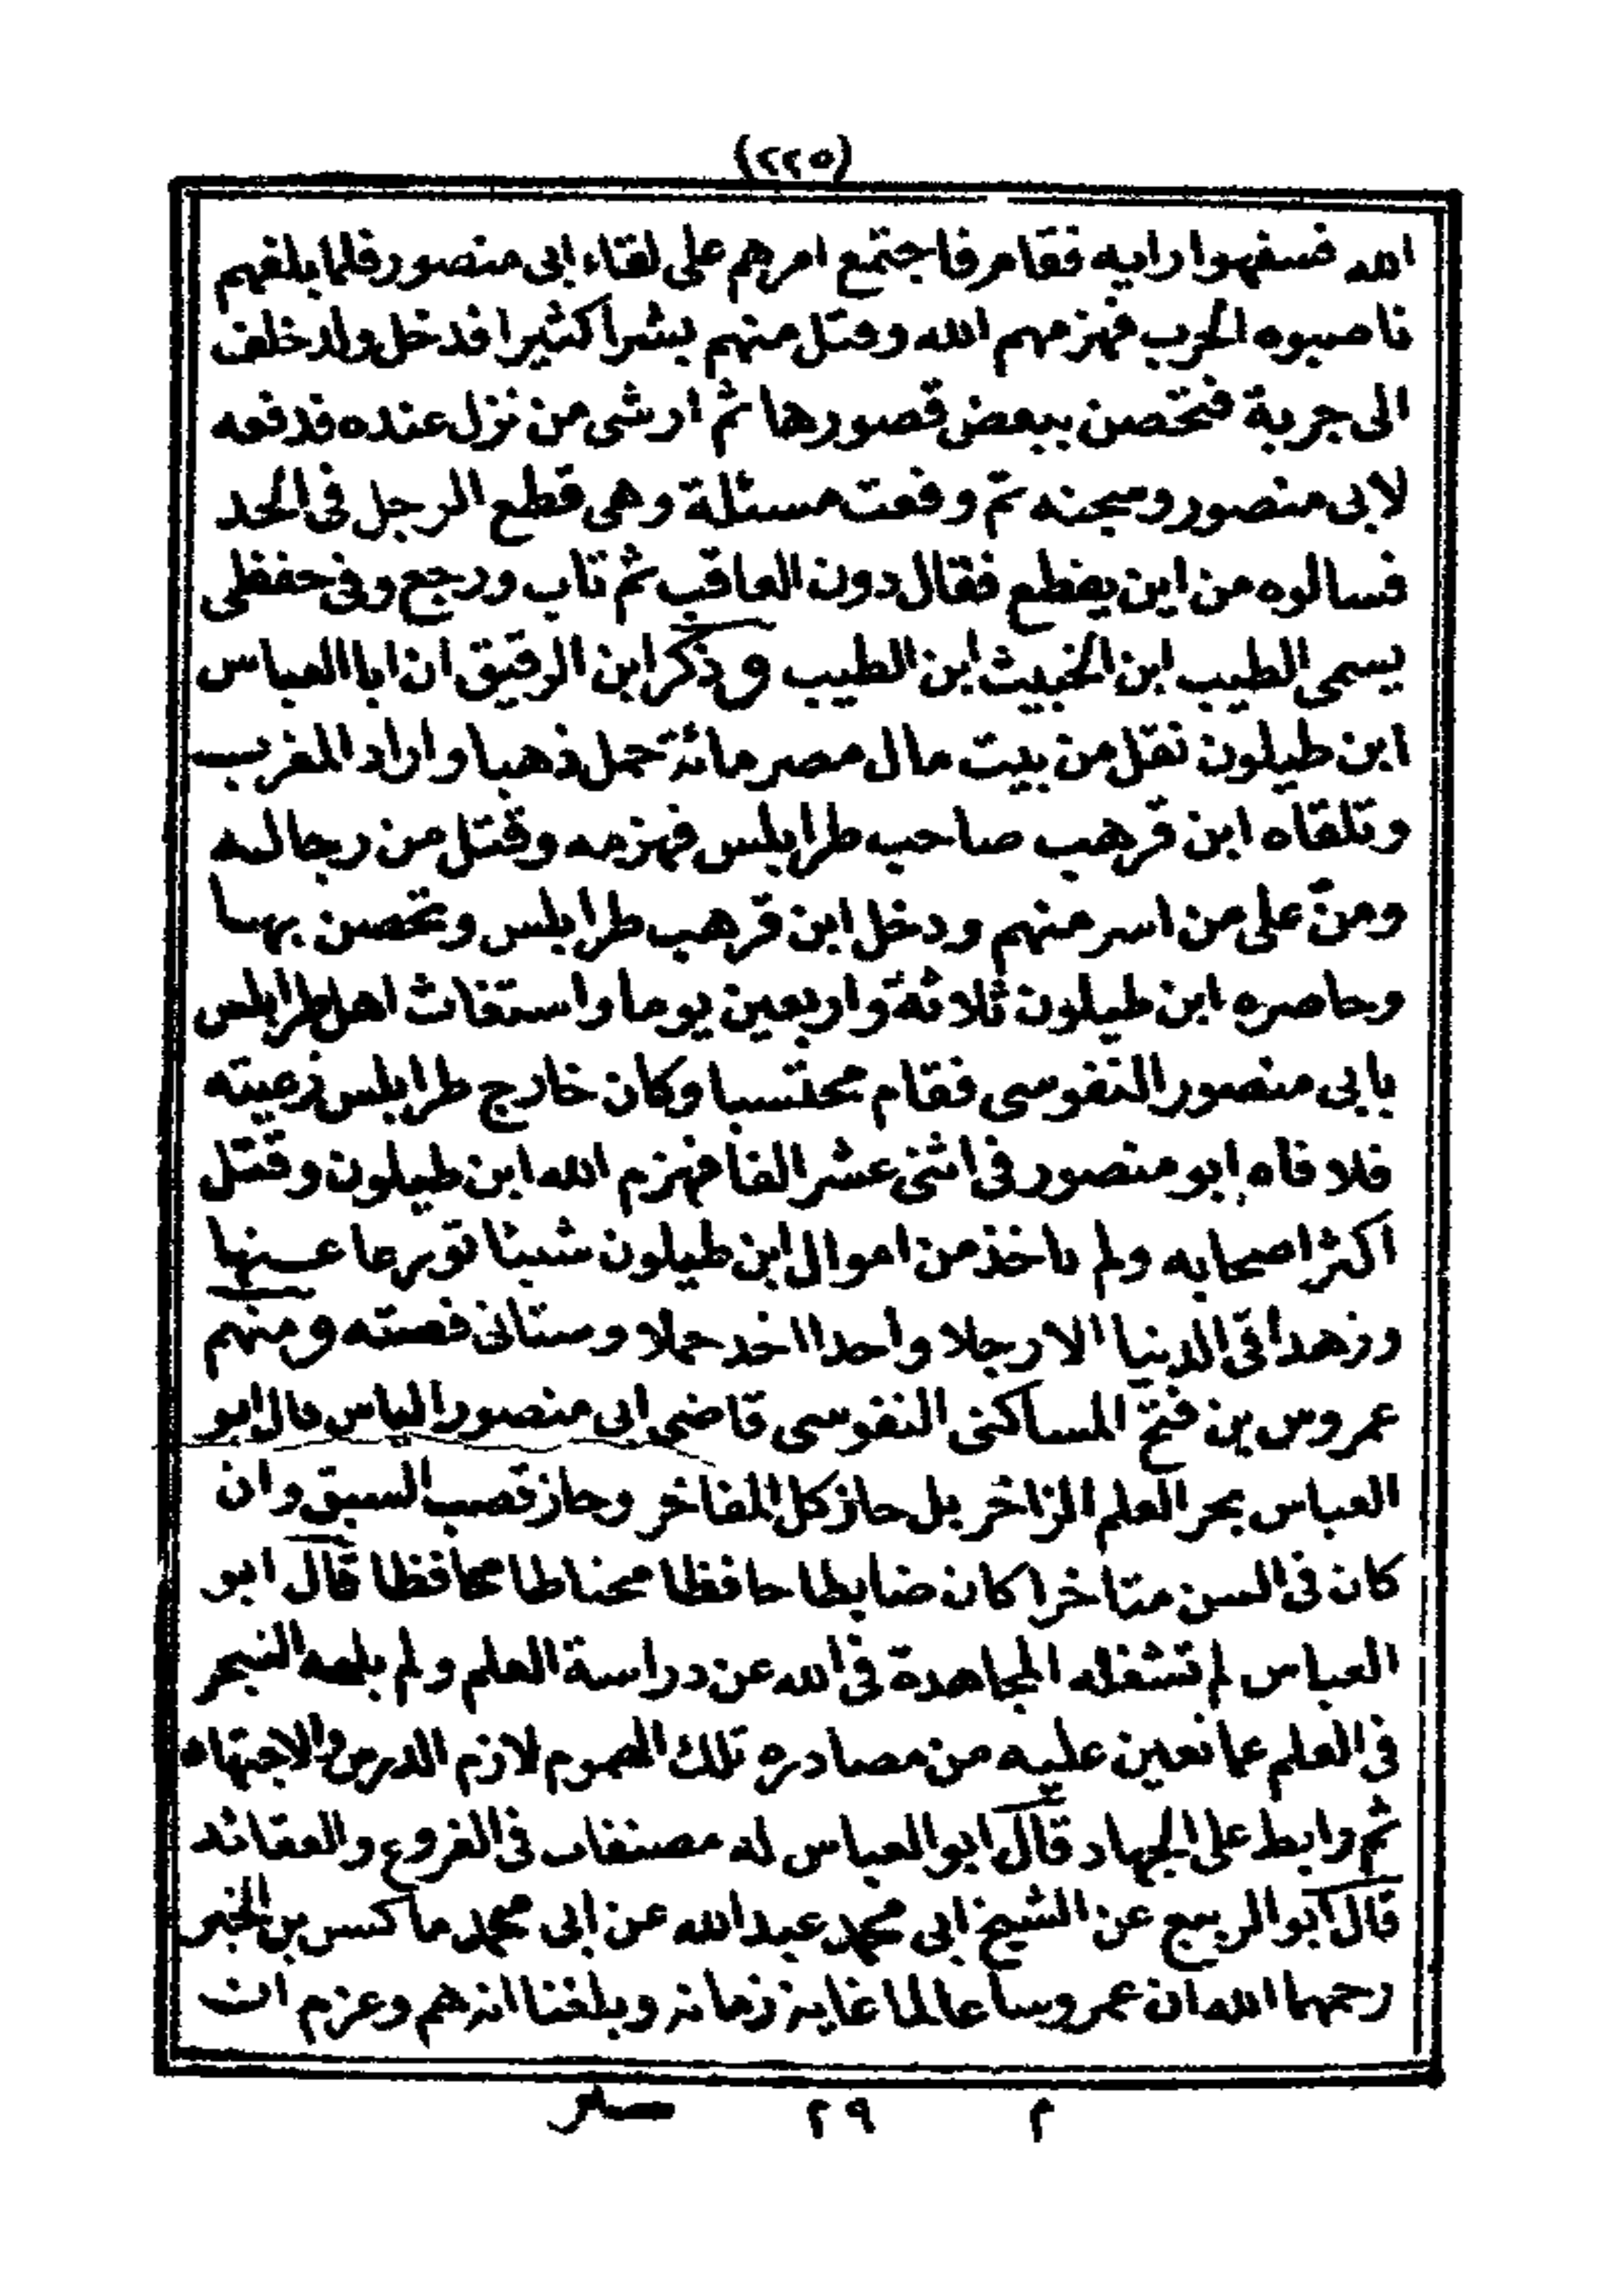 (٢٢٥)
الله فسفهوا رايه فقام فاجتمع امرهم على لقاء ابى منصور فلما بلغهم
ناصبوه الحرب فهزمهم الله وقتل منهم بشرا كثيرا فدخل ولد خلف
الى جربة فتحصن ببعض قصورها ثم ارشى من نزل عنده فدفعه
لابى منصور وسجنه ثم وقعت مسئلة وهى قطع الرجل فى الحد
فسالوه من اين يقطع فقال دون العاقب ثم تاب ورجع وفى حفظى
يسمى الطيب ابن الخبيث ابن الطيب وذكر ابن الرقيق ان ابا العباس
ابن طيلون نقل من بيت مال مصر مائة حمل ذهبا واراد المغرب
وتلقاه ابن قرهب صاحب طرابلس فهزمه وقتل من رجاله
ومنّ على من اسر منهم ودخل ابن قرهب طرابلس وتحصن بها
وحاصره ابن طيلون ثلاثة واربعين يوما واستغاث اهل طرابلس
بابى منصور النفوسى فقام محتسبا وكان خارج طرابلس رعيته
فلاقاه ابو منصور فى اثنى عشر الفا فهزم الله ابن طيلون وقتل
اكثر اصحابه ولم ياخذ من اموال ابن طيلون شيئا تورعا عنها
وزهدا فى الدنيا الا رجلا واحدا اخد حملا وستاتى قصته ومنهم
عمروس بن فتح المساكنى النفوسى قاضى ابى منصور الياس قال ابو
العباس بحر العلم الزاخر بل حاز كل المفاخر وحاز قصب السبق وان
كان فى السن متاخرا كان ضابطا حافظا محتاطا محافظا قال ابو
العباس لم تشغله المجاهدة فى الله عن دراسة العلم ولم يلهه التبحر
فى العلم عما تعين عليه من مصادره تلك الهموم لازم الدرس والاجتهاد
ثم رابط على الجهاد قال ابو العباس له مصنفات فى الفروع والعقائد
قال ابو الربيع عن الشيخ ابى محمد عبد الله عن ابى محمد ماكسن بن الخير
رحمهما الله ان عمروسا عالما غاية زمانه وبلغنا انه هم وعزم ان
م ٢٩ سير